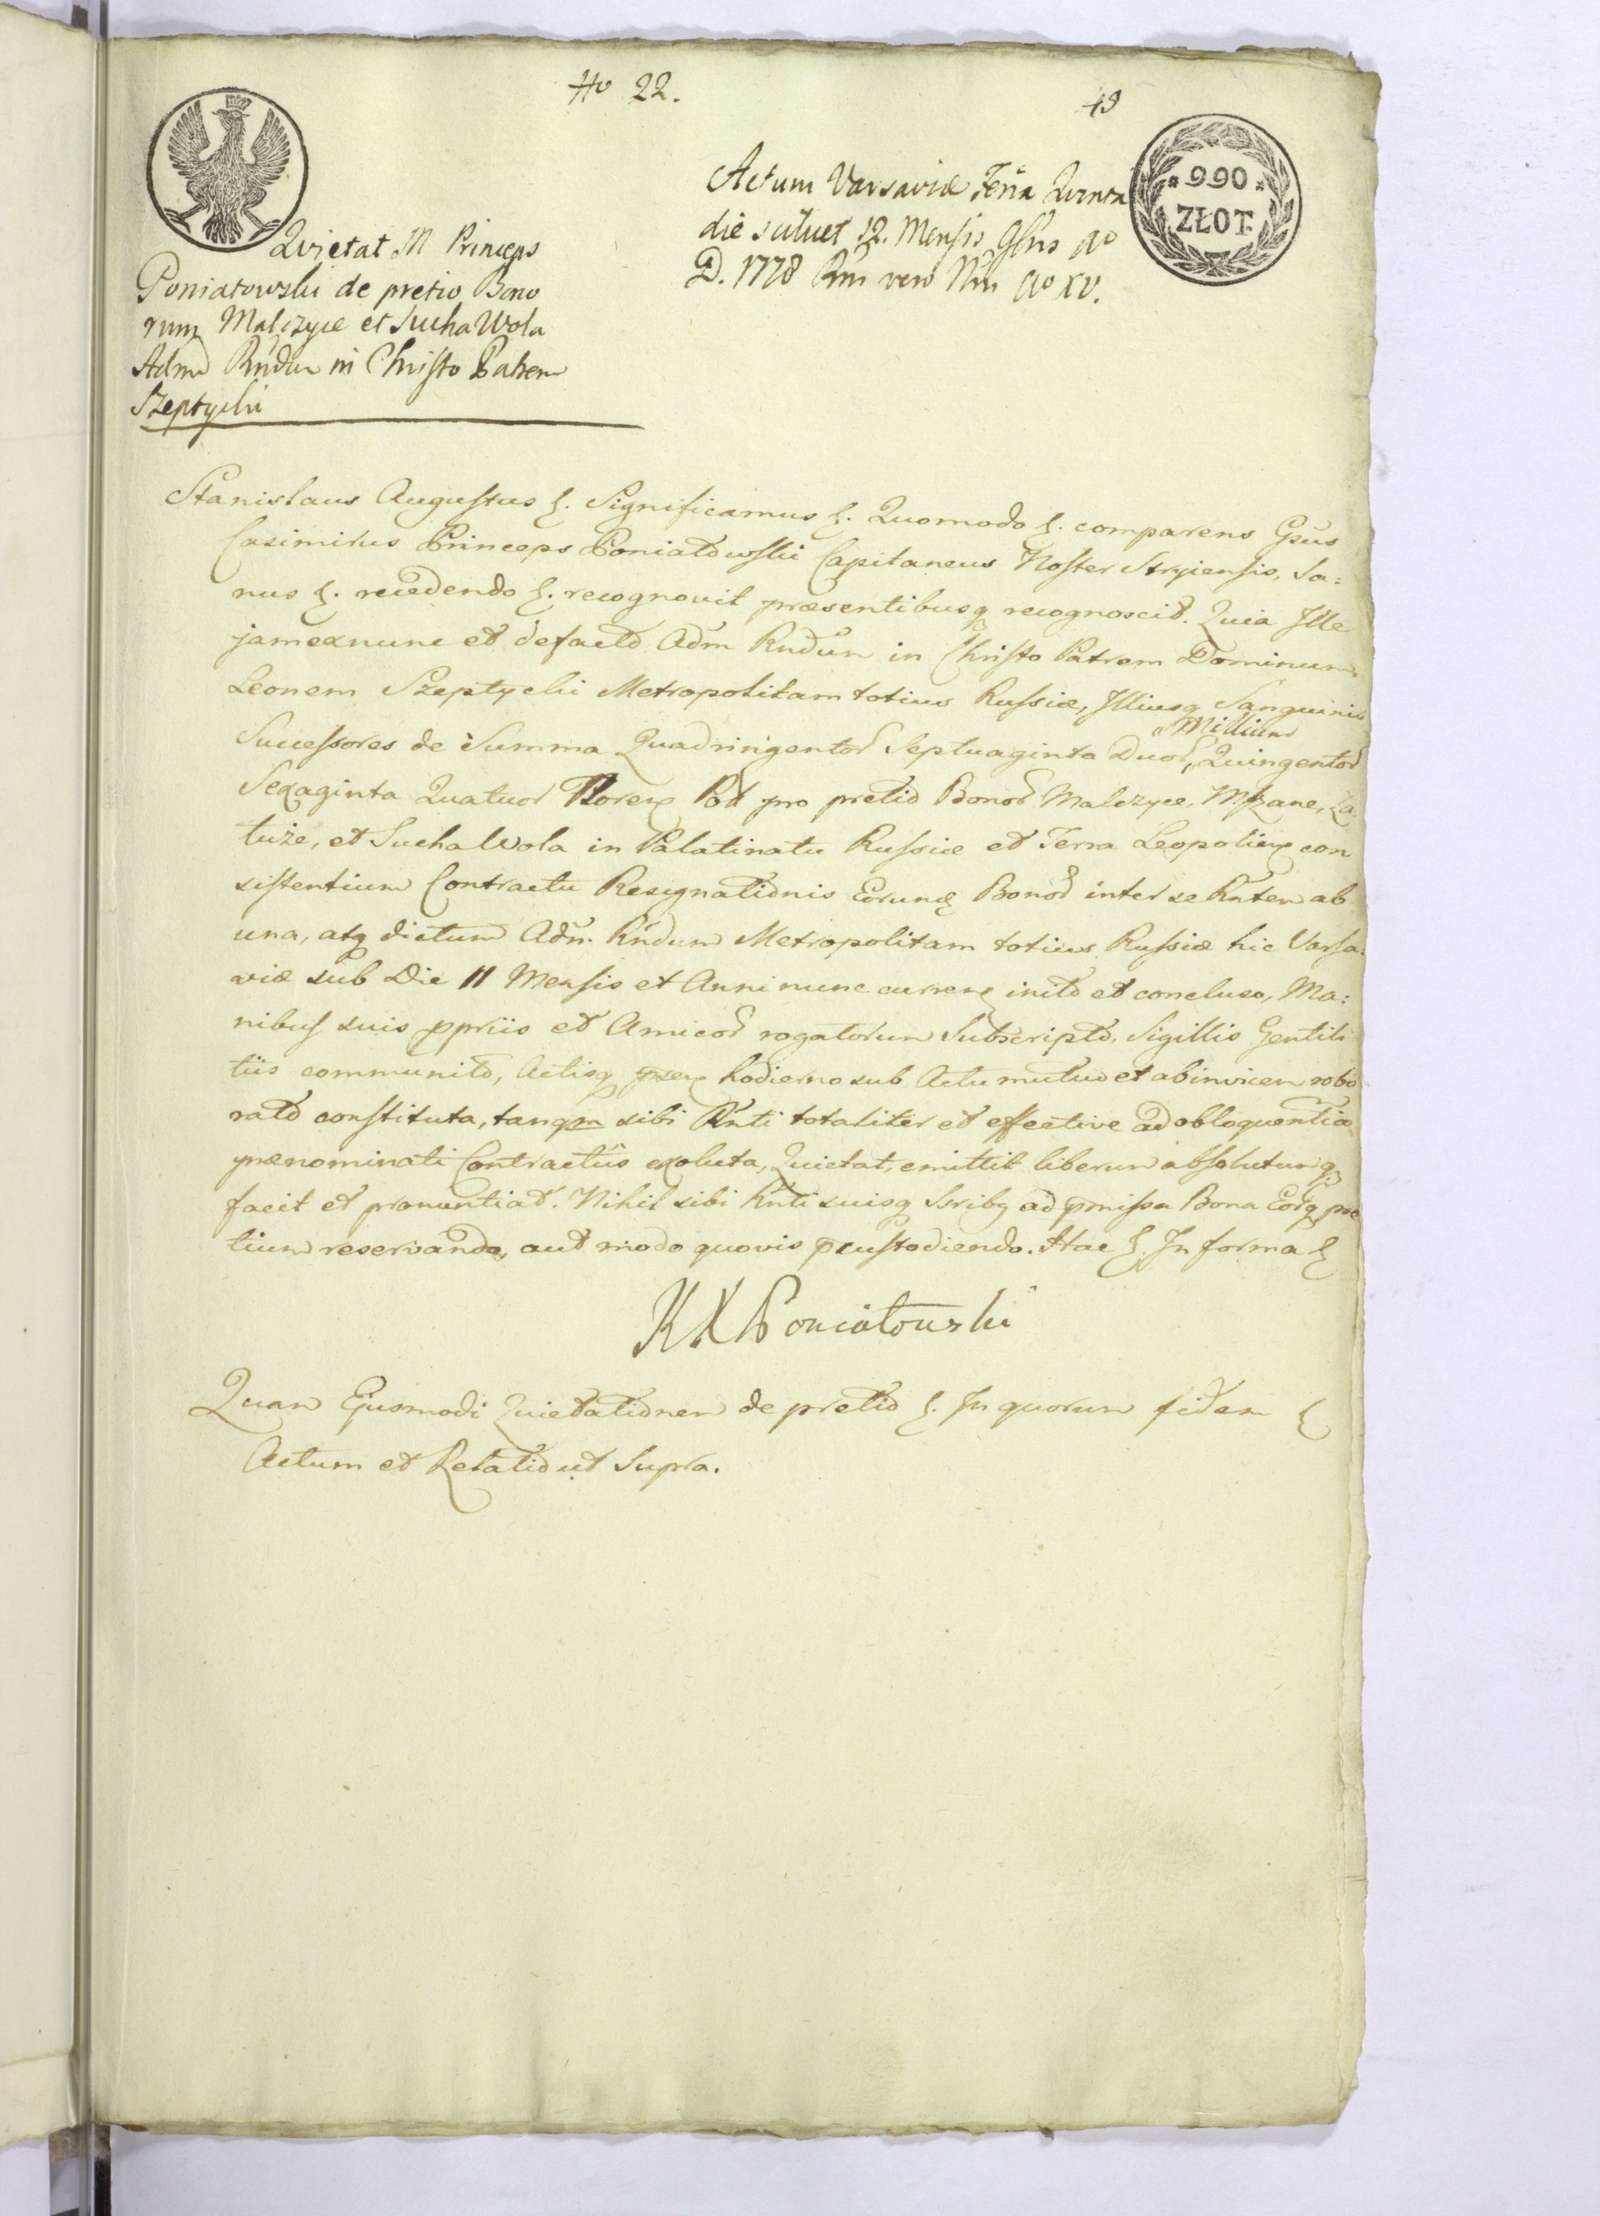 No 22.
49
990
ZŁOT.
Actum Varsaviæ Feria Quinta
die scilicet 12. Mensis 9bris Ao
D. 1778 Rni vero Nri Ao XV.
Quietat M Princeps
Poniatowski de pretio Bono
rum Malczyce et Sucha Wola
Adm Rndum in Christo Patrem
Szeptycki
Stanislaus Augustus &. Significamus &. Quomodo &. comparens Gsus
Casimirus Princeps Poniatowski Capitaneus Noster Stryiensis, Sa=
nus &. recedendo &. recognovit præsentibusq recognoscit. Quia Ille
jam ex nunc et de facto Adm Rndum in Christo Patrem Dominum
Leonem Szeptycki Metropolitam totius Russiæ, Illiusq Sanguinis
Successores de Summa Quadringentor Septuaginta Duor, Millium Quingentor
Sexaginta Quatuor Floren Pol pro pretio Bonor Malczyce, Mszane, Za
tuże, et Sucha Wola in Palatinatu Russiæ et Terra Leopolien con
sistentium Contractu Resignationis Eorund Bonor inter se Rntem ab
una, atq dictum Adm. Rndum Metropolitam totius Russiæ hic Varsa=
viæ sub Die 11 Mensis et Anni nunc curren inito et concluso, Ma=
nibus suis ppriis et Amicor rogatorum Subscripto, Sigillis Gentili
tiis communito, Actisq psen hodierno sub Actu mutuo et ab invicem robo
rato constituta, tanqm sibi Rnti totaliter et effective ad obloquentiam
prænominati Contractûs exoluta, Quietat, emittit liberum absolutumq
facit et pronuntiat. Nihil sibi Rnti suisq Ssribg ad pmissa Bona Eorq pre
tium reservando, aut modo quovis pcustodiendo. Hac &. In forma &
KX Poniatowski
Quam Ejusmodi Quietationem de pretio &. In quorum fidem &
Actum et Relatio ut Supra.